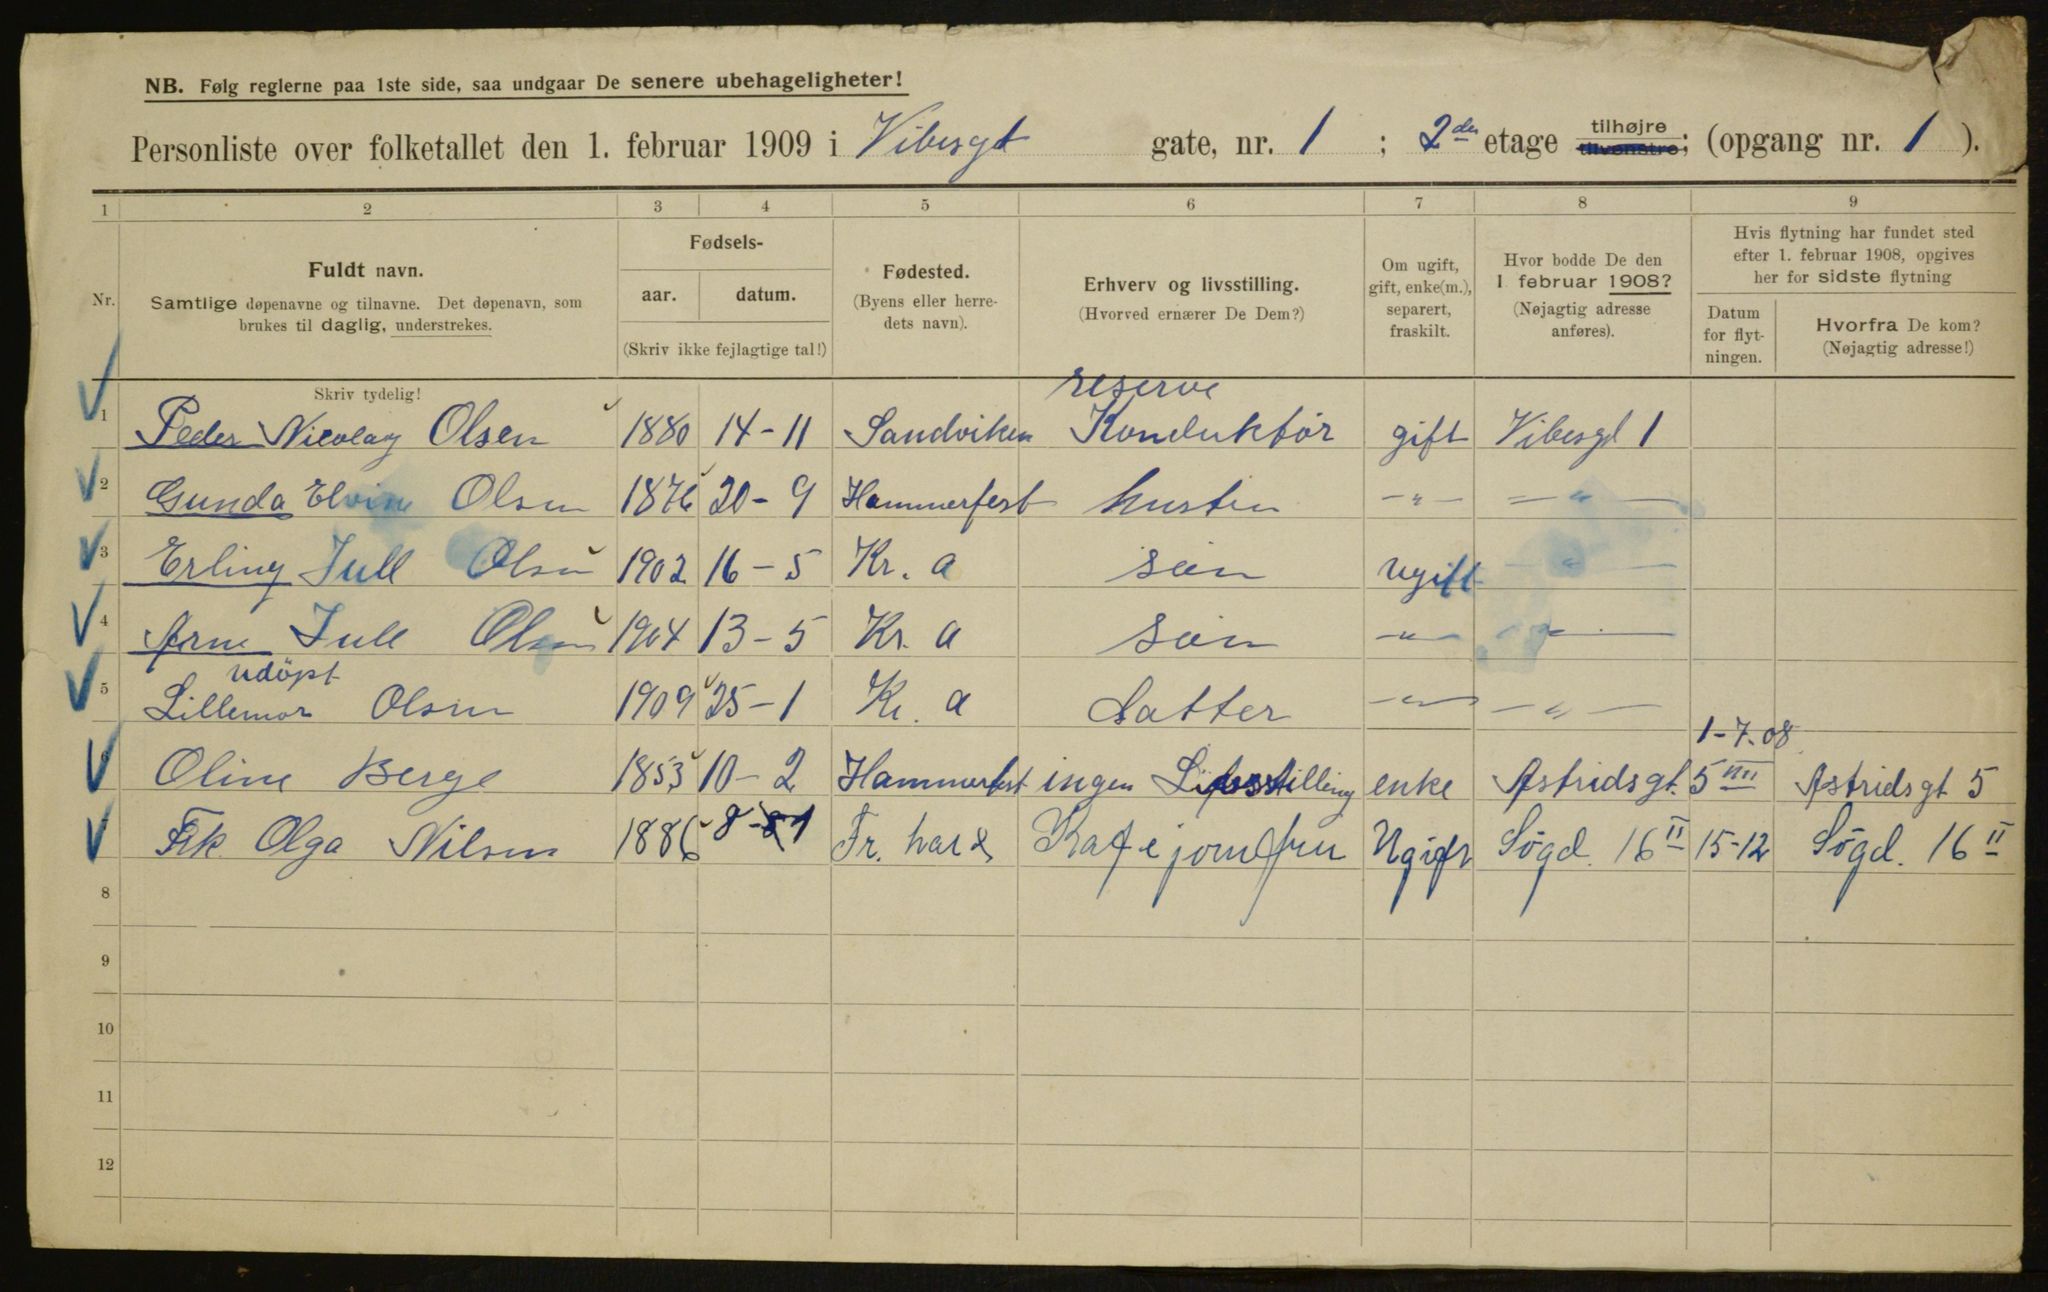 NB. Følg reglerne paa 1ste side, saa undgaar De senere ubehageligheter!
Personliste over folketallet den 1. februar 1909 i Vibesgt gate, nr. 1 ; 2den etage tilhøjre tilvenstre; (opgang nr. 1 ).
1 2 3 4 5 6 7 8 9
Nr.
Fuldt navn.
Samtlige døpenavne og tilnavne. Det døpenavn, som
brukes til daglig, understrekes.
Fødsels-
aar. datum.
(Skriv ikke fejlagtige tal!)
Fødested.
(Byens eller herre-
dets navn).
Erhverv og livsstilling.
(Hvorved ernærer De Dem?)
Om ugift,
gift, enke(m.),
separert,
fraskilt.
Hvor bodde De den
1. februar 1908?
(Nøjagtig adresse
anføres).
Hvis flytning har fundet sted
efter 1. februar 1908, opgives
her for sidste flytning
Datum
for flyt-
ningen.
Hvorfra De kom?
(Nøjagtig adresse!)
Skriv tydelig!
reserve
1 Peder Nicolay Olsen 1880 14-11 Sandviken Konduktör gift Vibesgt 1
2 Gunda Elvine Olsen 1876 20-9 Hammerfest hustru -"- -"-
3 Erling Jull Olsen 1902 16-5 Kr. a sön ugift -"-
4 Arne Jull Olsen 1904 13-5 Kr. a sön -"- -"-
udöpt
5 Lillemor Olsen 1909 25-1 Kr. a datter -"- -"-
1-7-08
6 Oline Berge 1853 10-2 Hammerfest ingen Livsstilling enke Astridsgt. 5 IIII Astridsgt 5
7 Frk. Olga Nilsen 1886 8- Fr. hald Kafejomfru Ugift Søgd. 16 II 15-12 Søgd. 16 II
8
9
10
11
12